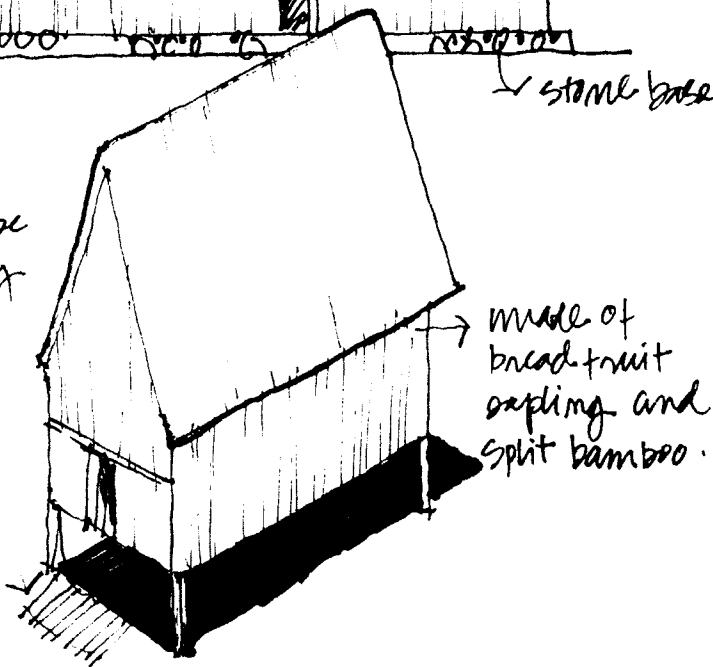 stone base
made of
breadfruit
sapling and
split bamboo.